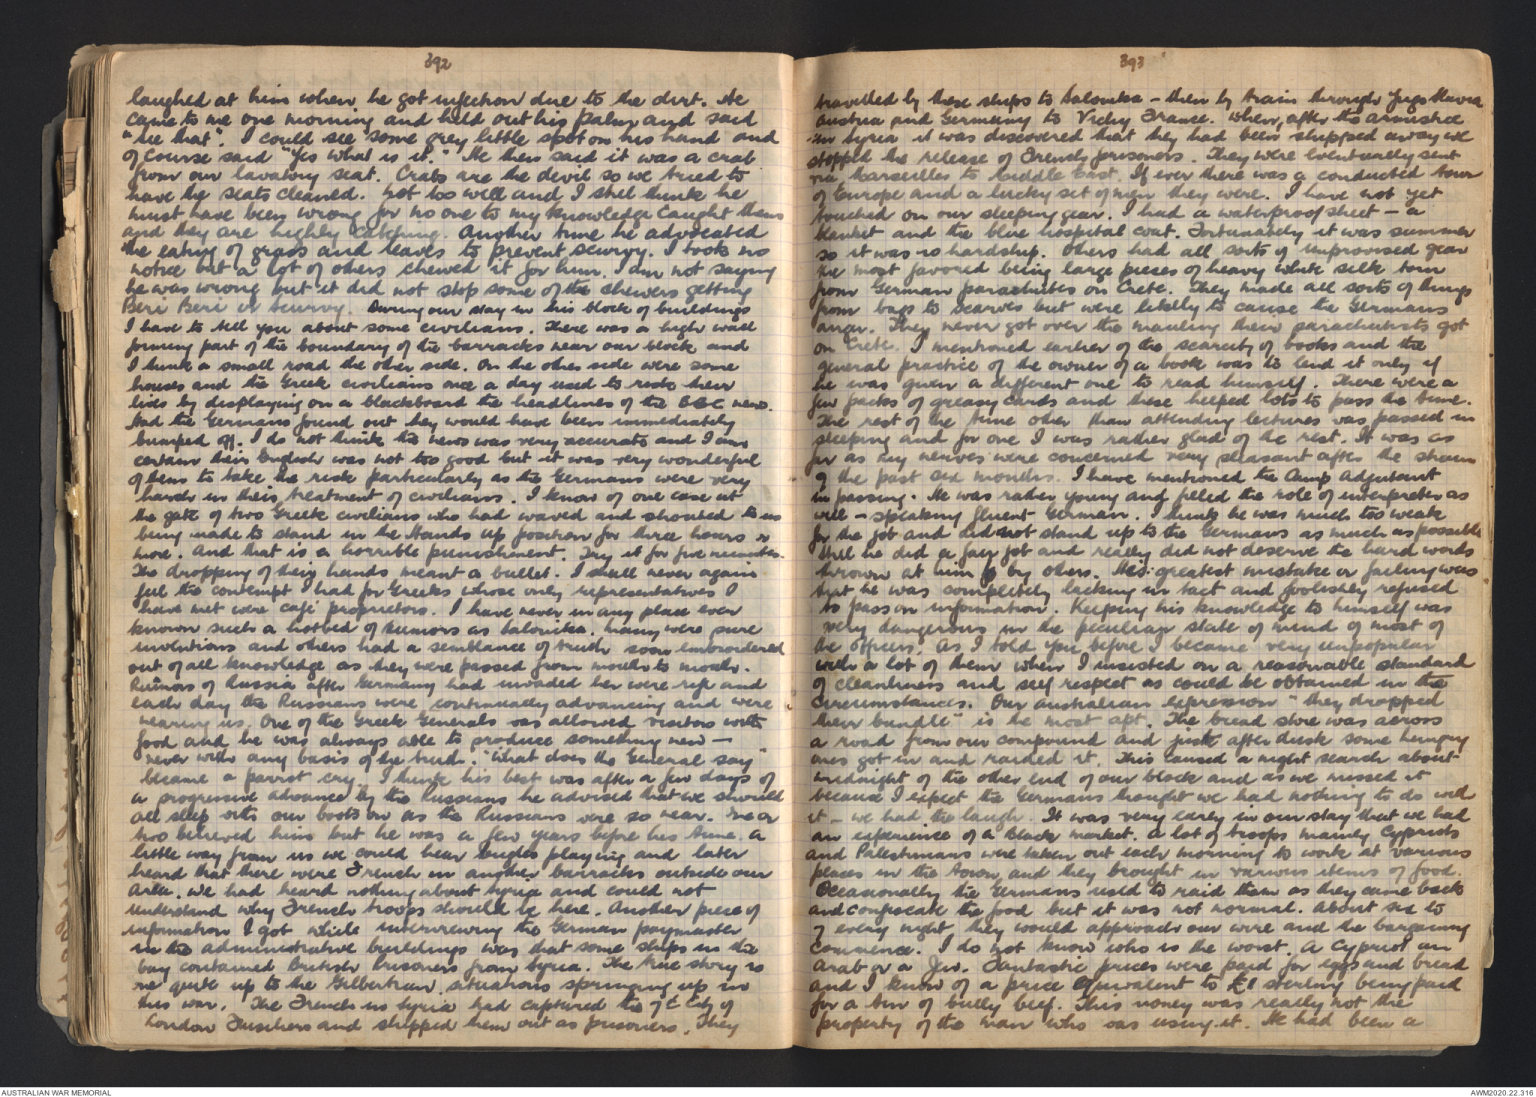 392
laughed at him when he got infection due to the dirt. He
came to me one morning and held out his palm and said
"see that". I could see some grey little spot on his hand and
of course said "Yes what is it." He then said it was a crab
from our lavatory seat. Crabs are the devil so we tried to
have the seats cleaned. Not too well and I still think he
must have been wrong for no one to my knowledge caught them
and they are highly catching. Another time he advocated
the eating of grass and leaves to prevent scurvy. I took no
notice but a lot of others chewed it for him. I am not saying
he was wrong but it did not stop some of the chewers getting
Beri Beri or Scurvy. During our stay in his block of buildings
I have to tell you about some civilians. There was a high wall
forming part of the boundary of the barracks near our block and
I think a small road the other side. On the other side were some
houses and the Greek civilians once a day used to risk their
lives by displaying on a blackboard the headlines of the BBC news.
Had the Germans found out they would have been immediately
bumped off. I do not think the news was very accurate and I am
certain their English was not too good but it was very wonderful
of them to take the risk particularly as the Germans were very
harsh in their treatment of civilians. I know of one case at
the gate of two Greek civilians who had waved and shouted to us
being made to stand in the Hands up position for three hours or
more. And that is a horrible punishment. Try it for five minutes.
The dropping of their hands meant a bullet. I shall never again
feel the contempt I had for Greeks whose only representatives I
have met were café proprietors. I have never in any place ever
known such a hotbed of rumors as Salonika. Many were pure
inventions and others had a semblance of truth soon embroidered
out of all knowledge as they were passed from mouth to mouth.
Rumors of Russia after Germany had invaded her were rife and
each day the Russians were continually advancing and were
nearing us. One of the Greek Generals was allowed visitors with
food and he was always able to produce something new -
never with any basis of the truth. "What does the General say"
became a parrot cry. I think his best was after a few days of
a progressive advance by the Russians he advised that we should
all sleep with our boots on as the Russians were so near. One or
two believed him but he was a few years before his time. A
little way from us we could hear bugles playing and later
heard that there were French in another barracks outside our
area. We had heard nothing about Syria and could not
understand why French troops should be here. Another piece of
information I got while interviewing the German paymaster
in the administrative buildings was that some ships in the
bay contained British Prisoners from Syria. The true story is
quite up to the Gilbertian situations springing up in
this war. The French in Syria had captured the City of
London Fusiliers and shipped them out as prisoners. They
393
travelled by these ships to Salonika - then by train through Yugo Slavia
Austria and Germany to Vichy France. When, after the armistice
in Syria it was discovered that they had been shipped away we
stopped the release of French prisoners. They were eventually sent
via Marseilles to Middle East. If ever there was a conducted tour
of Europe and a lucky set of men they were. I have not yet
touched on our sleeping gear. I had a waterproof sheet - a
blanket and the blue hospital coat. Fortunately it was summer
so it was no hardship. Others had all sorts of improvised gear
the most favored being large pieces of heavy white silk torn
from German parachutes on Crete. They made all sorts of things
from bags to scarves but were likely to cause the Germans
anger. They never got over the mauling their parachutists got
on Crete. I mentioned earlier of the scarcity of books and the
general practice of the owner of a book was to lend it only if
he was given a different one to read himself. There were a
few packs of greasy cards and these helped lots to pass the time.
The rest of the time other than attending lectures was passed in
sleeping and for one I was rather glad of the rest. It was as
far as my nerves were concerned very pleasant after the strain
of the past six months. I have mentioned the Camp Adjutant
in passing. He was rather young and filled the role of interpreter as
well - speaking fluent German. I think he was much too weak
for the job and did not stand up to the Germans as much as possible
Still he did a fair job and really did not deserve the hard words
thrown at him by others. His greatest mistake or failing was
that he was completely lacking in tact and foolishly refused
to pass on information. Keeping his knowledge to himself was
very dangerous in the peculiar state of mind of most of
the officers. As I told you before I became very unpopular
with a lot of them when I insisted on a reasonable standard
of cleanliness and self respect as could be obtained in the
circumstances. Our Australian expression "they dropped
their bundle" is the most apt. The bread store was across
a road from our compound and just after dusk some hungry
ones got in and raided it. This caused a night search about
midnight of the other end of our block and as we missed it
because I expect the Germans thought we had nothing to do with
it - we had the laugh. It was very early in our stay that we had
an experience of a Black market. A lot of troops mainly Cypriots
and Palestinians were taken out each morning to work at various
places in the town and they brought in various items of food.
Occasionally the Germans used to raid them as they came back
and confiscate the food but it was not normal. About six to
7 every night they would approach our wire and the bargaining
commence. I do not know who is the worst. A Cypriot an
Arab or a Jew. Fantastic prices were paid for eggs and bread
and I know of a price equivalent to £1 sterling being paid
for a tin of bully beef. This money was really not the
property of the man who was using it. He had been a
AUSTRALIAN WAR MEMORIAL
AWM2020.22.316